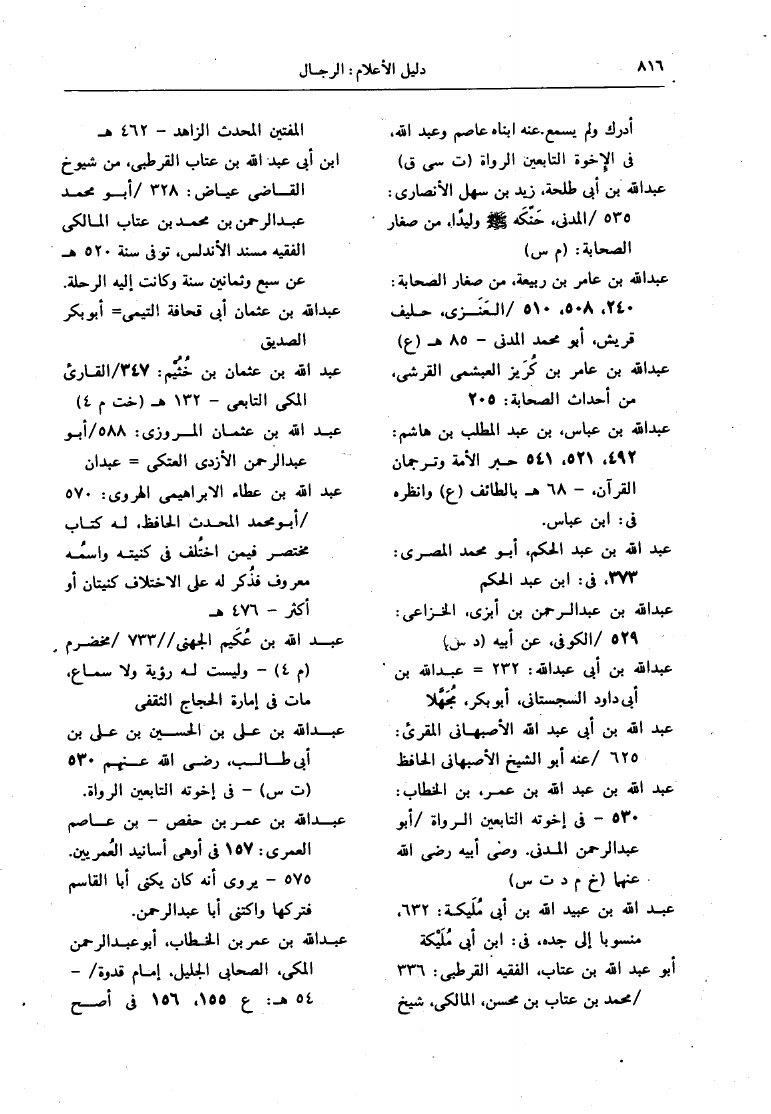 ٨١٦
دليل الأعلام : الرجال
أدرك ولم يسمع.عنه ابناه عاصم وعبد الله،
فى الإخوة التابعين الرواة (ت سى ق)
عبدالله بن أبى طلحة، زيد بن سهل الأنصارى:
٥٣٥ /المدنى، حَنَّكه ﷺ وليدًا، من صغار
الصحابة: (م س)
عبدالله بن عامر بن ربيعة، من صغار الصحابة:
٢٤٠، ٥٠٨، ٥١٠ /العَنَـزى، حليف
قريش، أبو محمد المدنى - ٨٥ هـ (ع)
عبدالله بن عامر بن كُرَيز العبشمى القرشى،
من أحداث الصحابة: ٢٠٥
عبدالله بن عباس، بن عبد المطلب بن هاشم:
٤٩٢، ٥٢١، ٥٤١ حبر الأمة وترجمان
القرآن، - ٦٨ هـ بالطائف (ع) وانظره
فى: ابن عباس.
عبد الله بن عبد الحكم، أبو محمد المصرى:
٣٧٣، فى: ابن عبد الحكم
عبدالله بن عبدالرحمن بن أبزى، الخزاعى:
٥٢٩ /الكوفى، عن أبيه (د س)
عبدالله بن أبى عبدالله: ٢٣٢ = عبدالله بن
أبى داود السجستانى، أبو بكر، مُجَهَّلا
عبد الله بن أبى عبد الله الأصبهانى المقرئ:
٦٢٥ /عنه أبو الشيخ الأصبهانى الحافظ
عبد الله بن عبد الله بن عمر، بن الخطاب:
٥٣٠ - فى إخوته التابعين الرواة /أبو
عبدالرحمن المدنى. وصى أبيه رضى الله
عنهما (خ م د ت س)
عبد الله بن عبيد الله بن أبى مُلَيكة: ٦٣٢،
منسوبا إلى جده، فى: ابن أبى مُلَيْكة
أبو عبد الله بن عتاب، الفقيه القرطبى: ٣٣٦
/محمد بن عتاب بن محسن، المالكى، شيخ
المفتين المحدث الزاهد - ٤٦٢ هـ
ابن أبى عبد الله بن عتاب القرطبى، من شيوخ
القاضى عياض: ٣٢٨ /أبو محمد
عبدالرحمن بن محمد بن عتاب المالكى
الفقيه مسند الأندلس، توفى سنة ٥٢٠ هـ
عن سبع وثمانين سنة وكانت إليه الرحلة.
عبدالله بن عثمان أبى قحافة التيمى= أبو بكر
الصديق
عبد الله بن عثمان بن خُثَيْم: ٣٤٧/القارئ
المكى التابعى - ١٣٢ هـ (خت م ٤)
عبد الله بن عثمان المروزى: ٥٨٨/أبو
عبدالرحمن الأزدى العتكى = عبدان
عبد الله بن عطاء الابراهيمى الهروى: ٥٧٠
/أبو محمد المحدث الحافظ، له كتاب
مختصر فيمن اختُلف فى كنيته واسمُه
معروف فذُكر له على الاختلاف كنيتان أو
أكثر - ٤٧٦ هـ
عبد الله بن عُكَيم الجهنى//٧٣٣ /مخضرم
(م ٤) - وليست له رؤية ولا سماع،
مات فى إمارة الحجاج الثقفى
عبدالله بن على بن الحسين بن على بن
أبى طالب، رضى الله عنهم ٥٣٠
(ت س) - فى إخوته التابعين الرواة.
عبدالله بن عمر بن حفص - بن عاصم
العمرى: ١٥٧ فى أوهى أسانيد العُمريين.
٥٧٥ - يروى أنه كان يكنى أبا القاسم
فتركها واكتنى أبا عبدالرحمن.
عبدالله بن عمر بن الخطاب، أبو عبدالرحمن
المكى، الصحابى الجليل، إمام قدوة/ -
٥٤ هـ: ع ١٥٥، ١٥٦ فى أصح